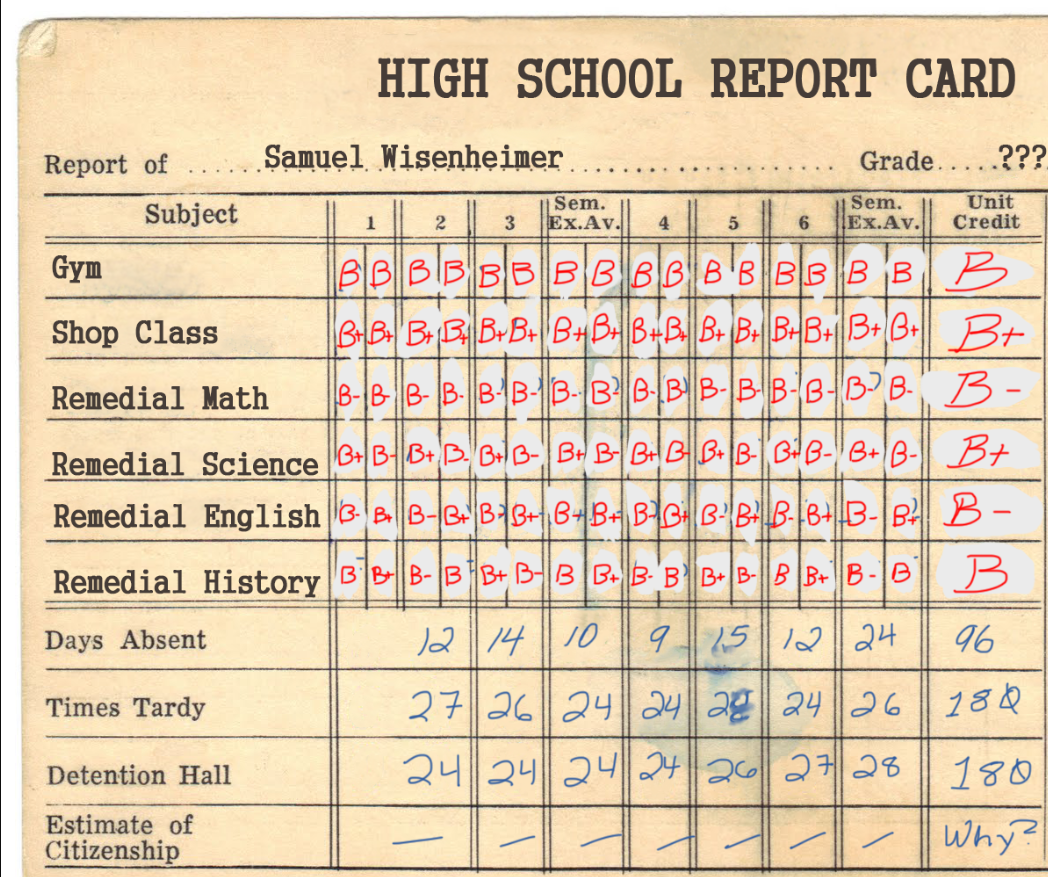 HIGH SCHOOL REPORT CARD
Report of ........Samuel Wisenheimer................ Grade.....???
Subject 1 2 3 Sem. Ex.Av. 4 5 6 Sem. Ex.Av. Unit Credit
Gym B B B B B B B B B B B B B B B B B
Shop Class B+ B+ B+ B+ B+ B+ B+ B+ B+ B+ B+ B+ B+ B+ B+ B+ B+
Remedial Math B- B- B- B- B- B- B- B- B- B- B- B- B- B- B- B- B-
Remedial Science B+ B- B+ B- B+ B- B+ B- B+ B- B+ B- B+ B- B+ B- B+
Remedial English B- B+ B- B+ B- B+ B+ B+ B- B+ B- B+ B- B+ B- B+ B-
Remedial History B B+ B- B B+ B- B B+ B- B B+ B- B B+ B- B B
Days Absent 12 14 10 9 15 12 24 96
Times Tardy 27 26 24 24 24 26 180
Detention Hall 24 24 24 24 26 27 28 180
Estimate of Citizenship — — — — — — — Why?